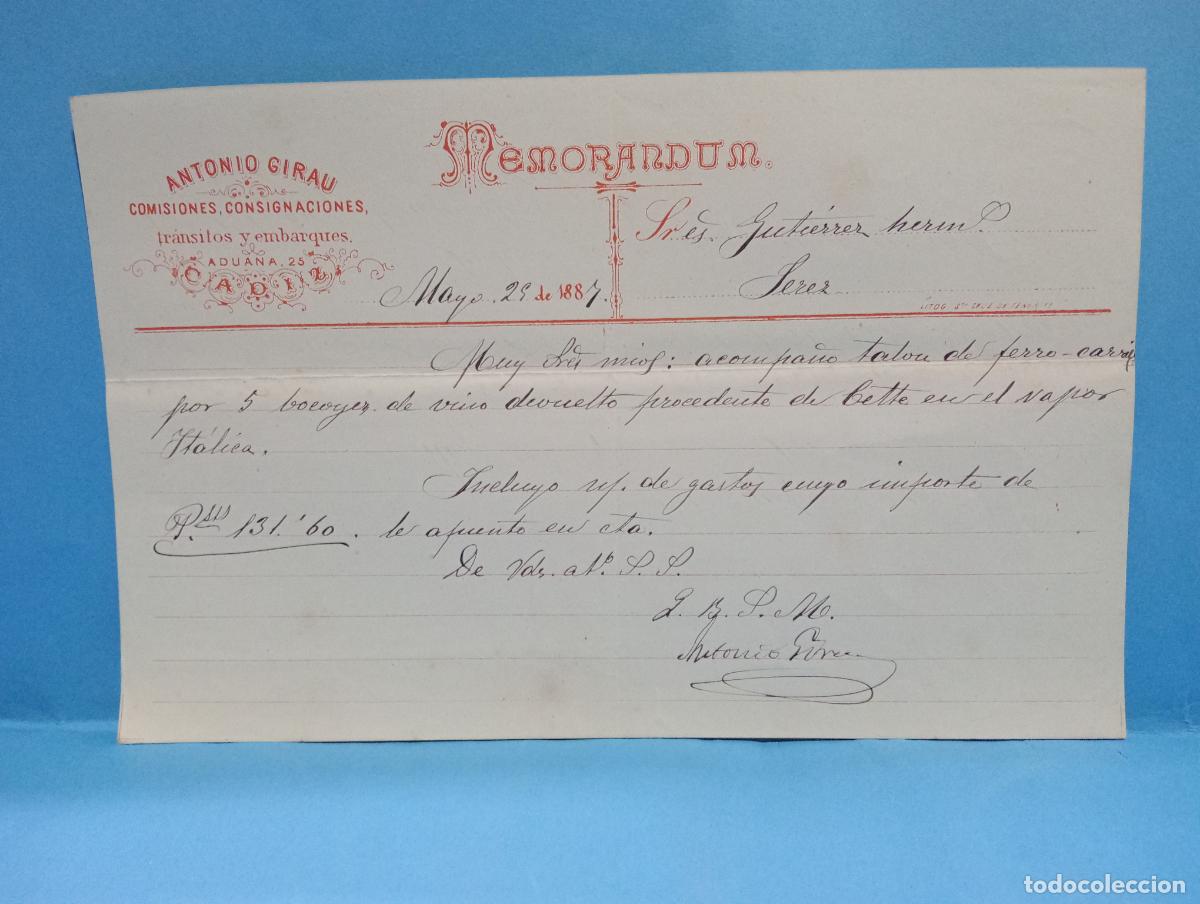 MEMORANDUM.
ANTONIO GIRAU
COMISIONES, CONSIGNACIONES,
tránsitos y embarques.
ADUANA, 25
CADIZ
Sres. Gutiérrez herm.º
Mayo 29 de 1887.
Jerez
LITOG. STA CRUZ DE TENERIFE
Muy Sres mios: acompaño talon de ferro-carril
por 5 bocoyes de vino devuelto procedente de Cette en el vapor
Itálica.
Incluyo de gastos cuyo importe de
Ptas 131.'60. le apunto en cta.
De Vds. S. S.
Q. B. S. M.
Antonio Girau
todocoleccion